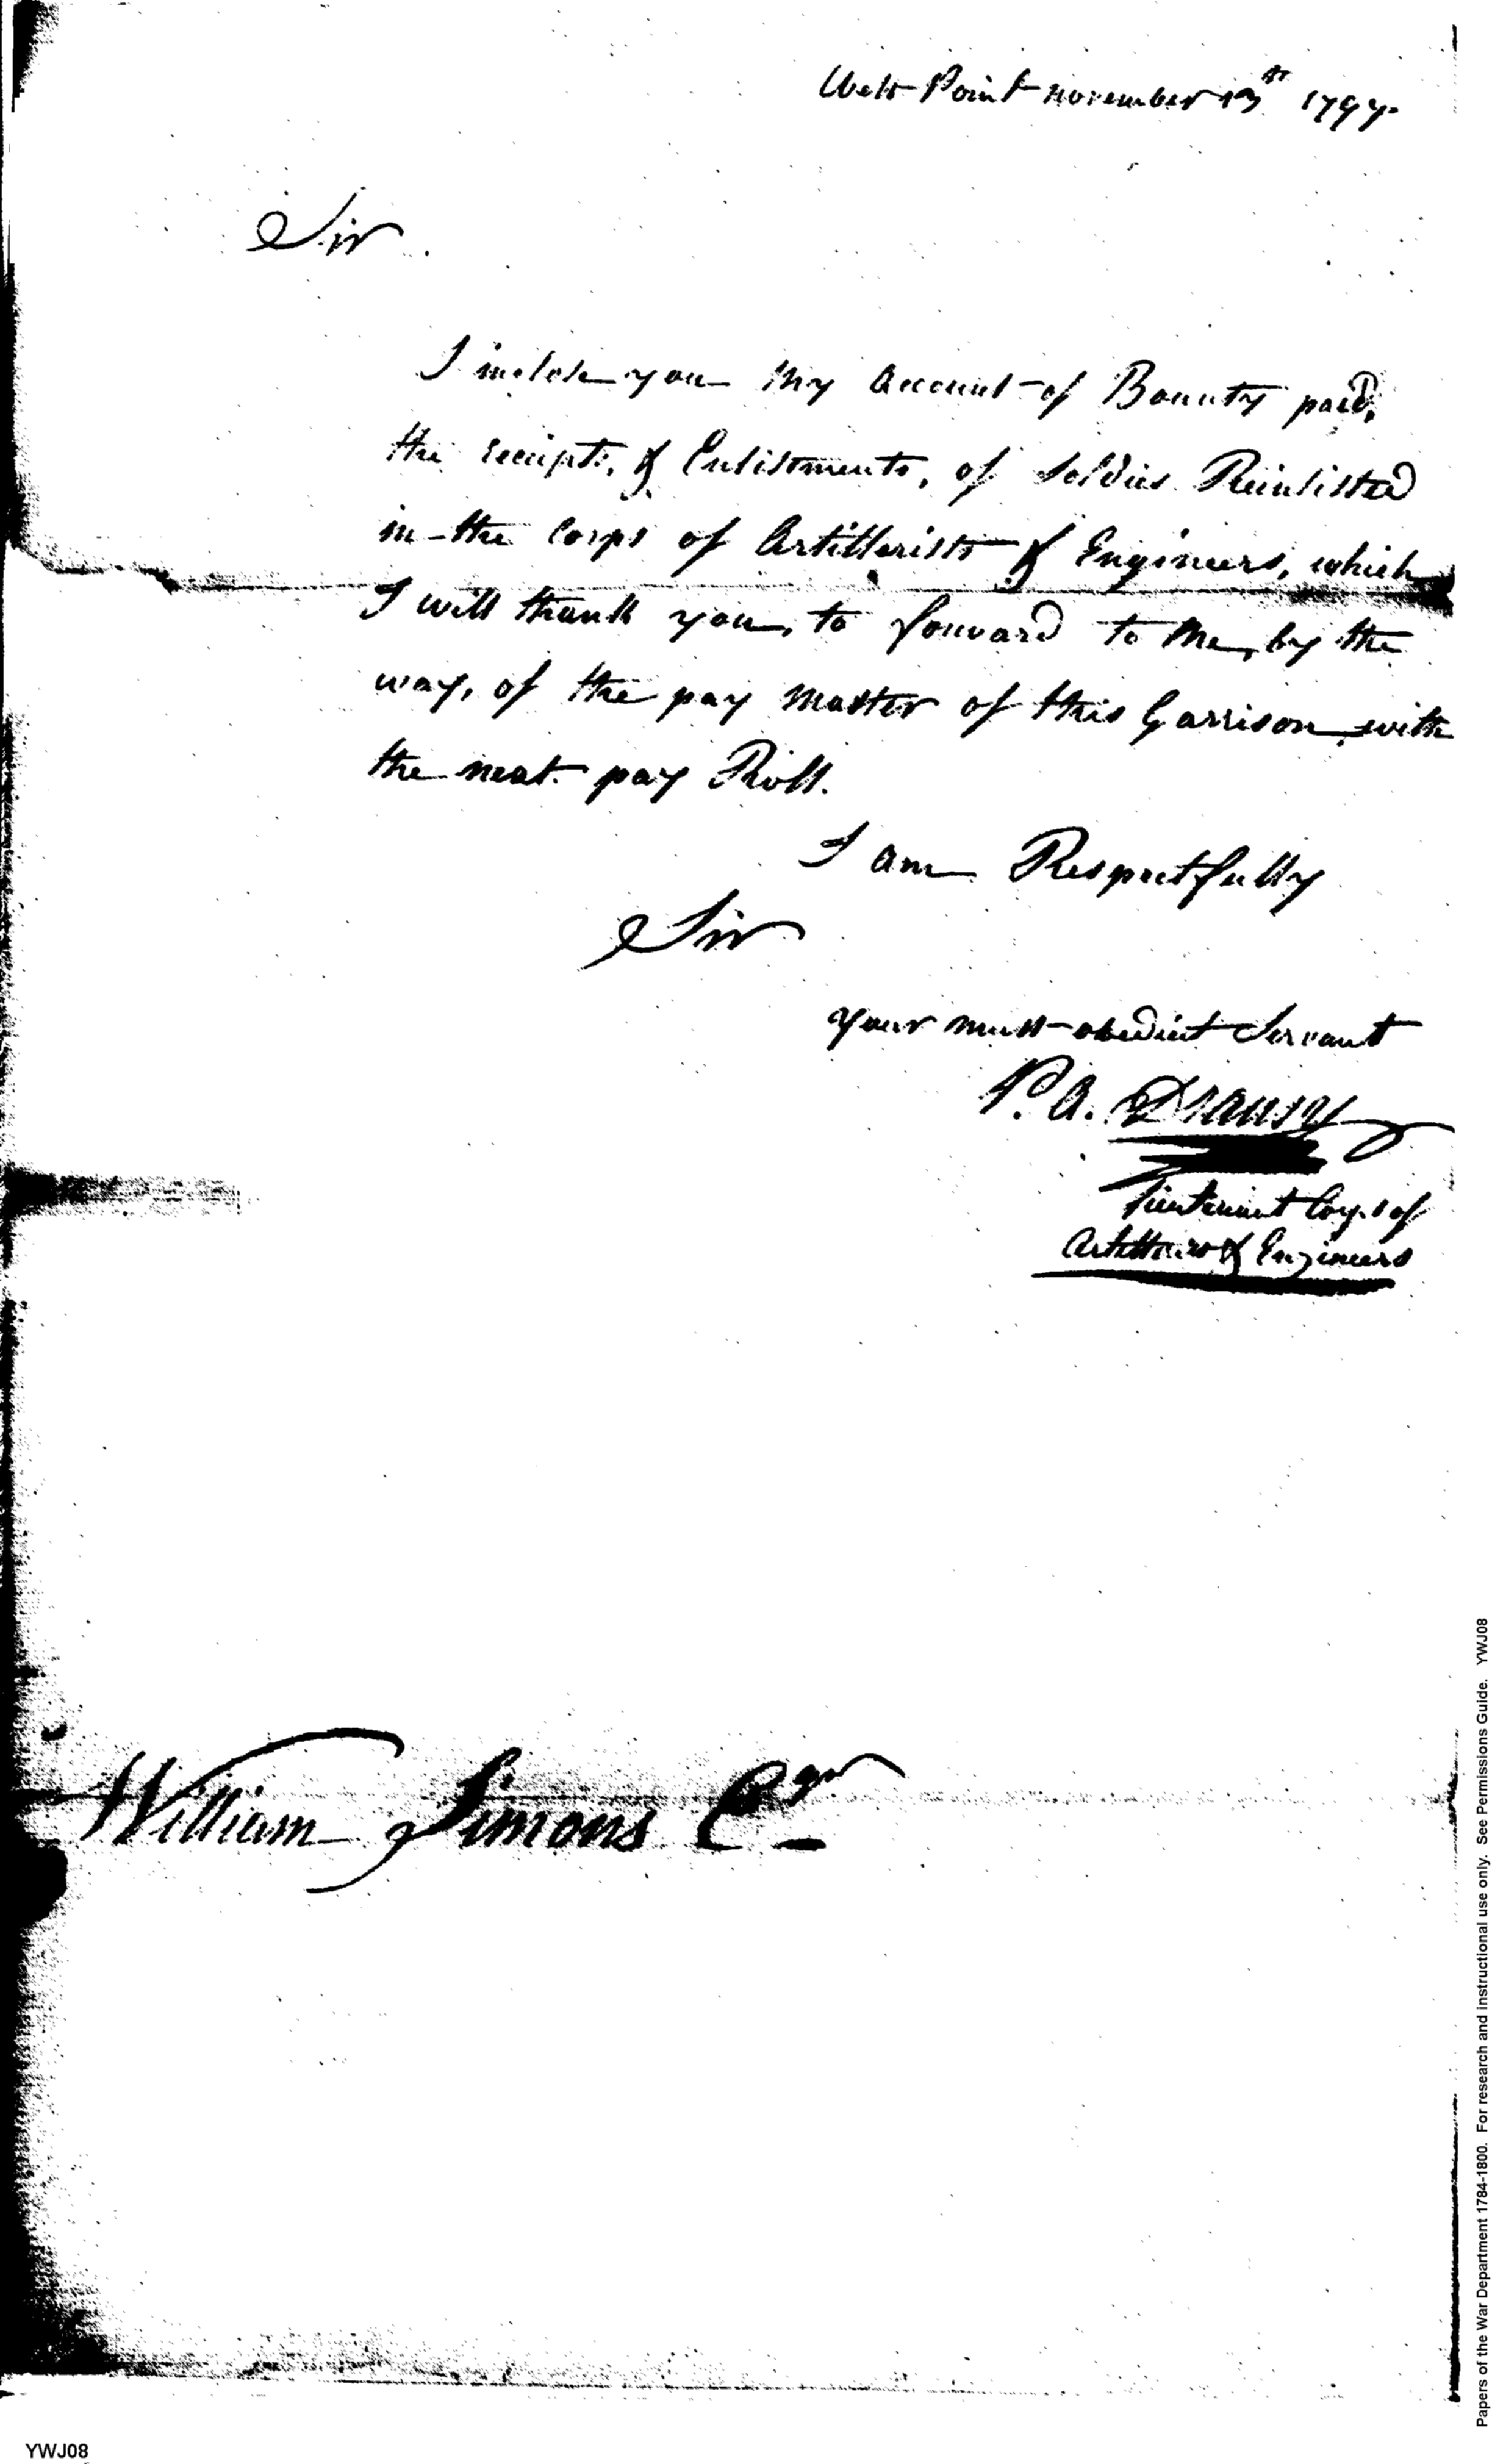 West Point november 13th 1797.
Sir.
I inclose you My Account of Bounty paid,
the receipts, & Enlistments, of Soldies Reinlisted
in the Corps of Artillerists & Engineers, which
I will thank you, to forward to Me, by the
way, of the pay Master of this Garrison, with
the next pay Roll.
I am Respectfully
Sir
your most obedient Servant
P. A. Dransy
Lieutenant Corps of
Artillerists & Engineers
William Simons Eqr
Papers of the War Department 1784-1800. For research and instructional use only. See Permissions Guide. YWJ08
YWJ08